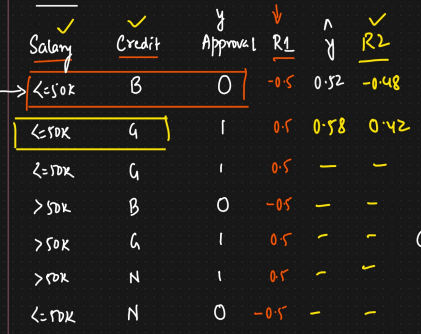 y ŷ
Salary Credit Approval R1 R2
<=50K B 0 -0.5 0.52 -0.48
<=50K G 1 0.5 0.58 0.42
<=50K G 1 0.5 - -
>50K B 0 -0.5 - -
>50K G 1 0.5 - -
>50K N 1 0.5 - -
<=50K N 0 -0.5 - -